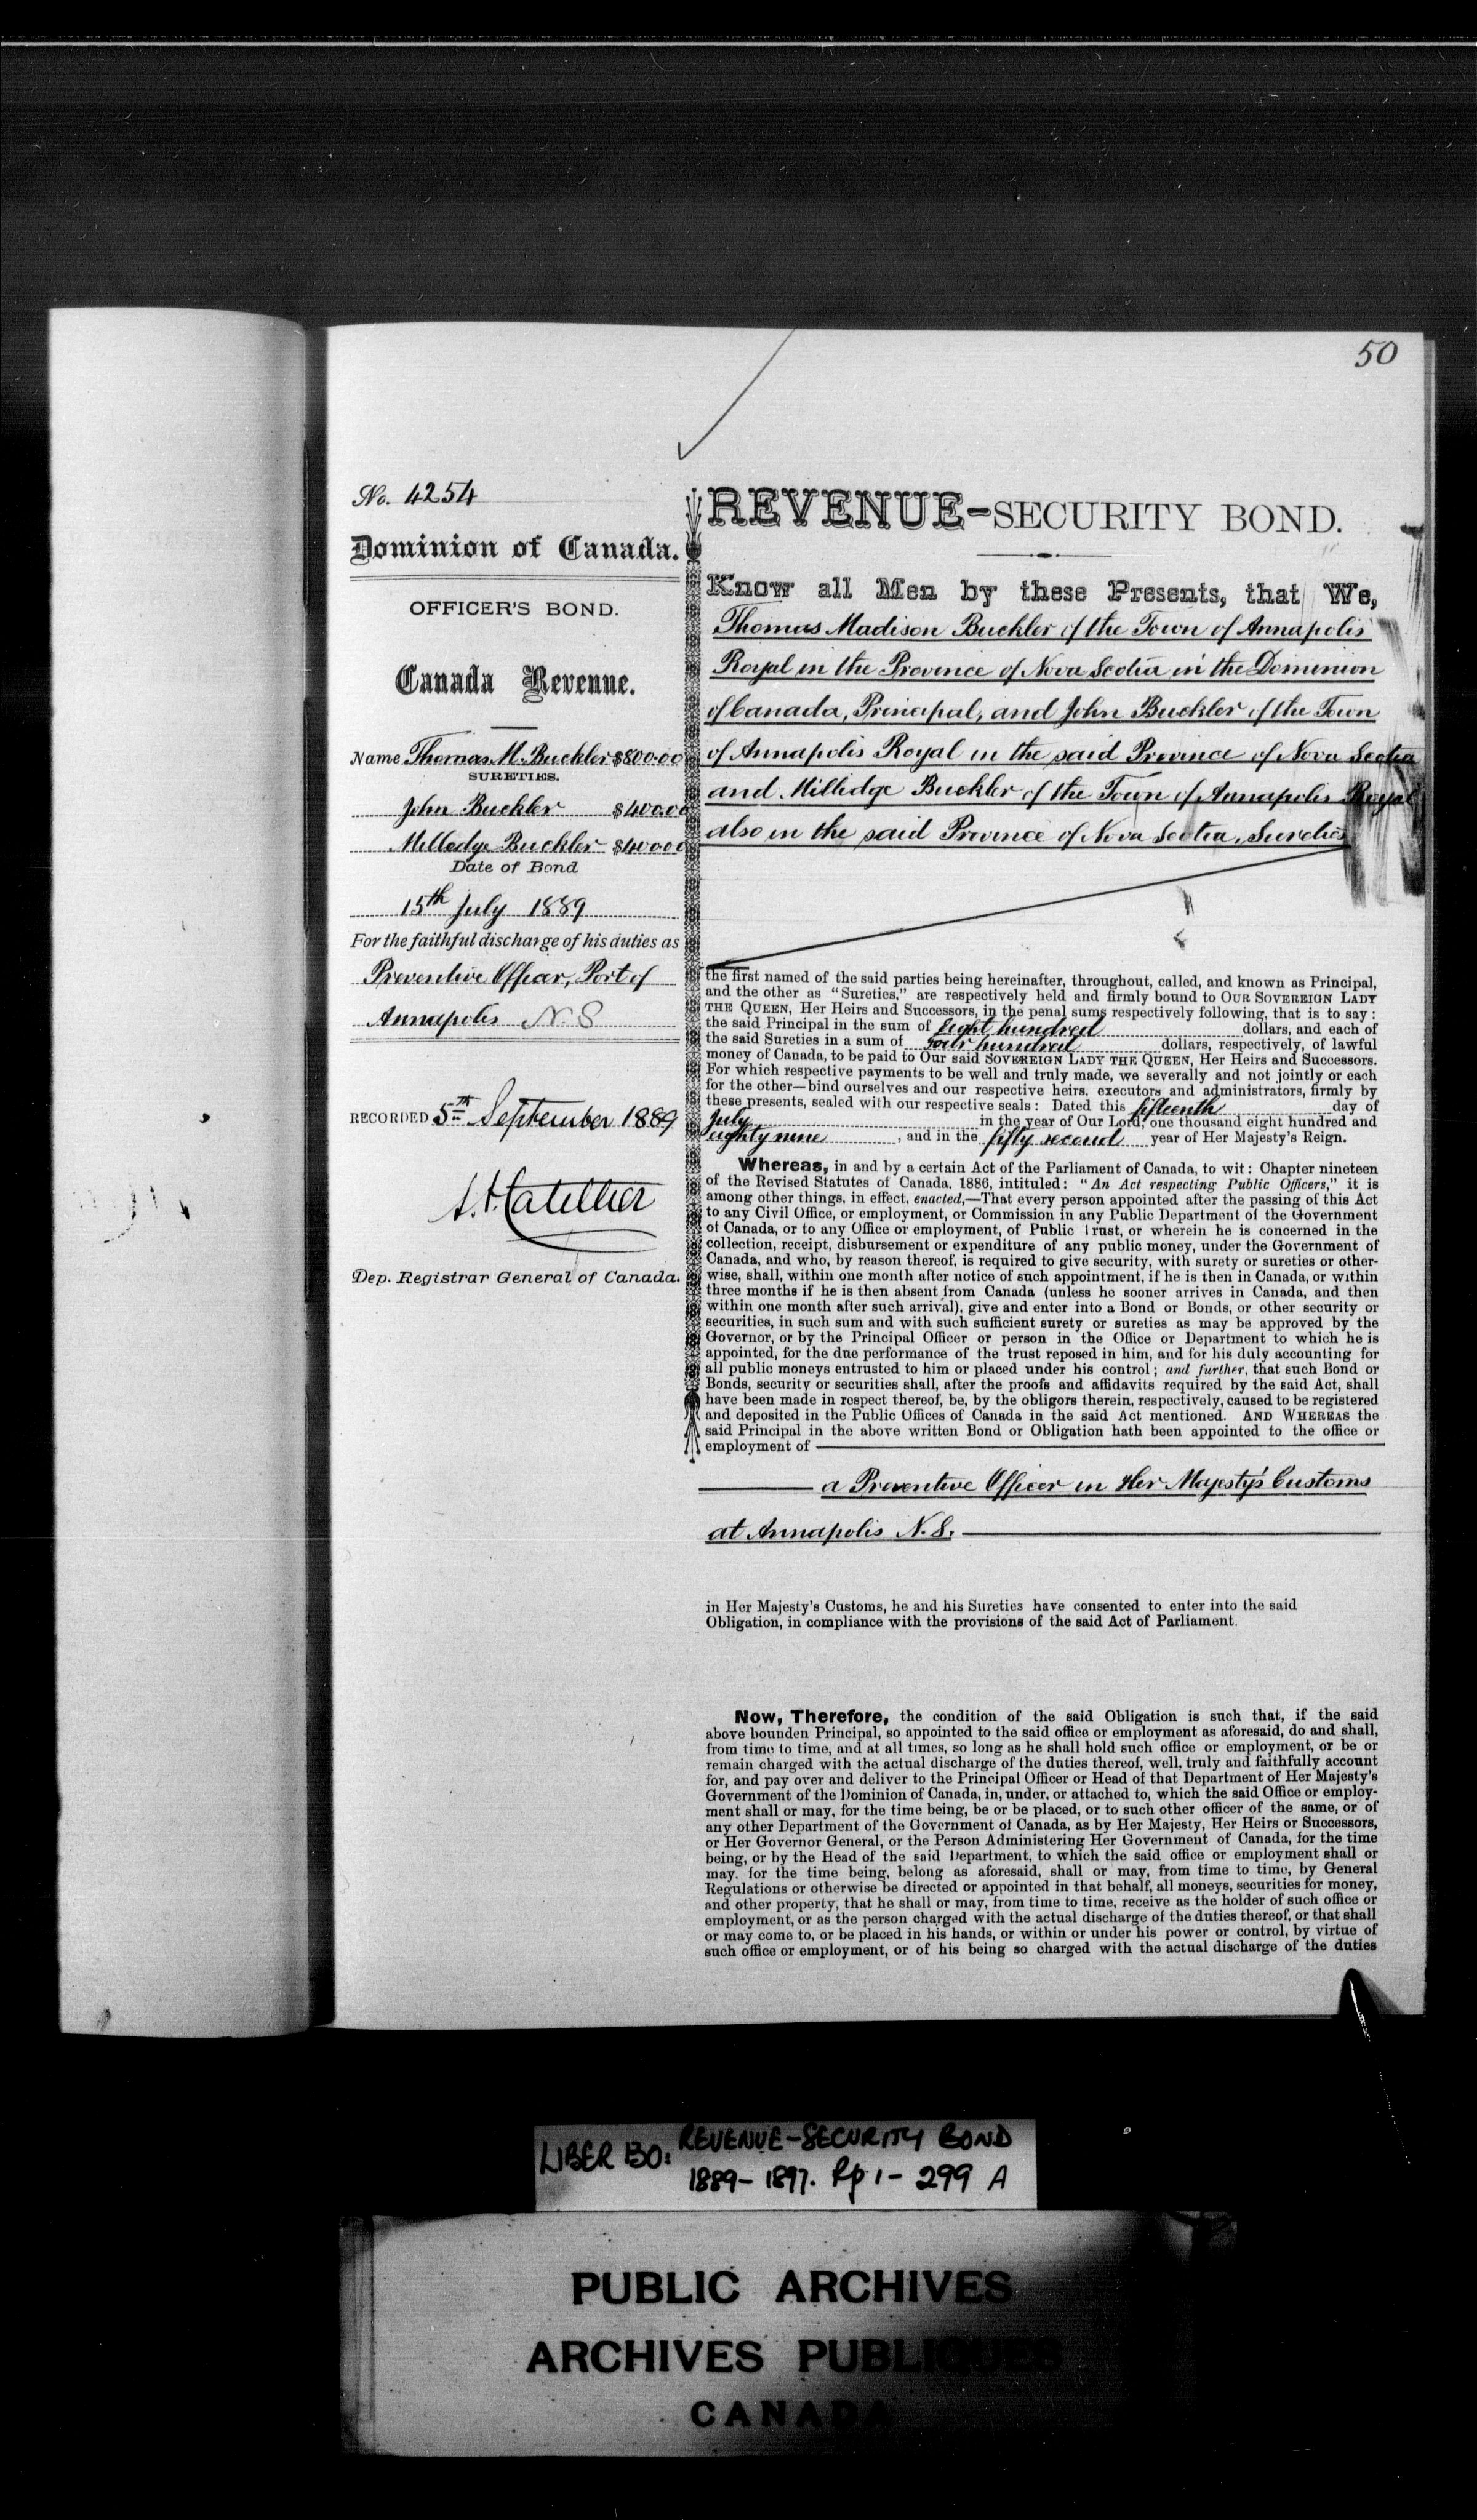 50
No. 4254
Dominion of Canada.
OFFICER'S BOND.
Canada Revenue.
Name Thomas M. Buckler $800.00
SURETIES.
John Buckler $400.00
Milledge Buckler $400.00
Date of Bond
15th July 1889
For the faithful discharge of his duties as
Preventive Officer, Port of
Annapolis N.S
RECORDED 5th September 1889
Dep. Registrar General of Canada.
REVENUE-SECURITY BOND.
Know all Men by these Presents, that We,
Thomas Madison Buckler of the Town of Annapolis
Royal in the Province of Nova Scotia in the Dominion
of Canada, Principal, and John Buckler of the Town
of Annapolis Royal in the said Province of Nova Scotia
and Milledge Buckler of the Town of Annapolis Royal
also in the said Province of Nova Scotia, Sureties
the first named of the said parties being hereinafter, throughout, called, and known as Principal,
and the other as "Sureties," are respectively held and firmly bound to OUR SOVEREIGN LADY
THE QUEEN, Her Heirs and Successors, in the penal sums respectively following, that is to say:
the said Principal in the sum of Eight hundred dollars, and each of
the said Sureties in a sum of four hundred dollars, respectively, of lawful
money of Canada, to be paid to Our said SOVEREIGN LADY THE QUEEN, Her Heirs and Successors.
For which respective payments to be well and truly made, we severally and not jointly or each
for the other—bind ourselves and our respective heirs, executors and administrators, firmly by
these presents, sealed with our respective seals: Dated this fifteenth day of
July in the year of Our Lord, one thousand eight hundred and
eighty nine, and in the fifty second year of Her Majesty's Reign.
Whereas, in and by a certain Act of the Parliament of Canada, to wit: Chapter nineteen
of the Revised Statutes of Canada, 1886, intituled: "An Act respecting Public Officers," it is
among other things, in effect, enacted,—That every person appointed after the passing of this Act
to any Civil Office, or employment, or Commission in any Public Department of the Government
of Canada, or to any Office or employment, of Public Trust, or wherein he is concerned in the
collection, receipt, disbursement or expenditure of any public money, under the Government of
Canada, and who, by reason thereof, is required to give security, with surety or sureties or other-
wise, shall, within one month after notice of such appointment, if he is then in Canada, or within
three months if he is then absent from Canada (unless he sooner arrives in Canada, and then
within one month after such arrival), give and enter into a Bond or Bonds, or other security or
securities, in such sum and with such sufficient surety or sureties as may be approved by the
Governor, or by the Principal Officer or person in the Office or Department to which he is
appointed, for the due performance of the trust reposed in him, and for his duly accounting for
all public moneys entrusted to him or placed under his control; and further, that such Bond or
Bonds, security or securities shall, after the proofs and affidavits required by the said Act, shall
have been made in respect thereof, be, by the obligors therein, respectively, caused to be registered
and deposited in the Public Offices of Canada in the said Act mentioned. AND WHEREAS the
said Principal in the above written Bond or Obligation hath been appointed to the office or
employment of
a Preventive Officer in Her Majesty's Customs
at Annapolis N.S.
in Her Majesty's Customs, he and his Sureties have consented to enter into the said
Obligation, in compliance with the provisions of the said Act of Parliament.
Now, Therefore, the condition of the said Obligation is such that, if the said
above bounden Principal, so appointed to the said office or employment as aforesaid, do and shall,
from time to time, and at all times, so long as he shall hold such office or employment, or be or
remain charged with the actual discharge of the duties thereof, well, truly and faithfully account
for, and pay over and deliver to the Principal Officer or Head of that Department of Her Majesty's
Government of the Dominion of Canada, in, under, or attached to, which the said Office or employ-
ment shall or may, for the time being, be or be placed, or to such other officer of the same, or of
any other Department of the Government of Canada, as by Her Majesty, Her Heirs or Successors,
or Her Governor General, or the Person Administering Her Government of Canada, for the time
being, or by the Head of the said Department, to which the said office or employment shall or
may, for the time being, belong as aforesaid, shall or may, from time to time, by General
Regulations or otherwise be directed or appointed in that behalf, all moneys, securities for money,
and other property, that he shall or may, from time to time, receive as the holder of such office or
employment, or as the person charged with the actual discharge of the duties thereof, or that shall
or may come to, or be placed in his hands, or within or under his power or control, by virtue of
such office or employment, or of his being so charged with the actual discharge of the duties
LIBER 130: REVENUE-SECURITY BOND
1889-1897. Pp 1-299 A
PUBLIC ARCHIVES
ARCHIVES PUBLIQUES
CANADA